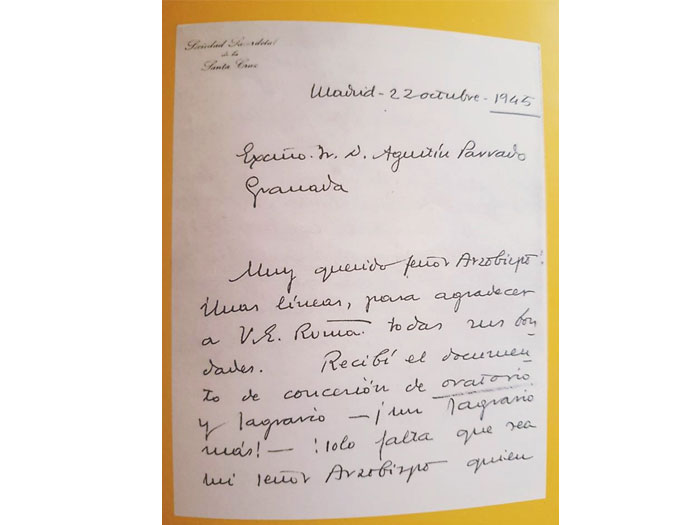 Sociedad Sacerdotal
de la
Santa Cruz
Madrid - 22 octubre - 1945
Excmo. Sr. D. Agustín Parrado
Granada
Muy querido señor Arzobispo:
Unas líneas, para agradecer
a V.E. Rvma. todas sus bon-
dades. Recibí el documen-
to de concesión de oratorio
y Sagrario — ¡un Sagrario
más! — : solo falta que sea
mi señor Arzobispo quien